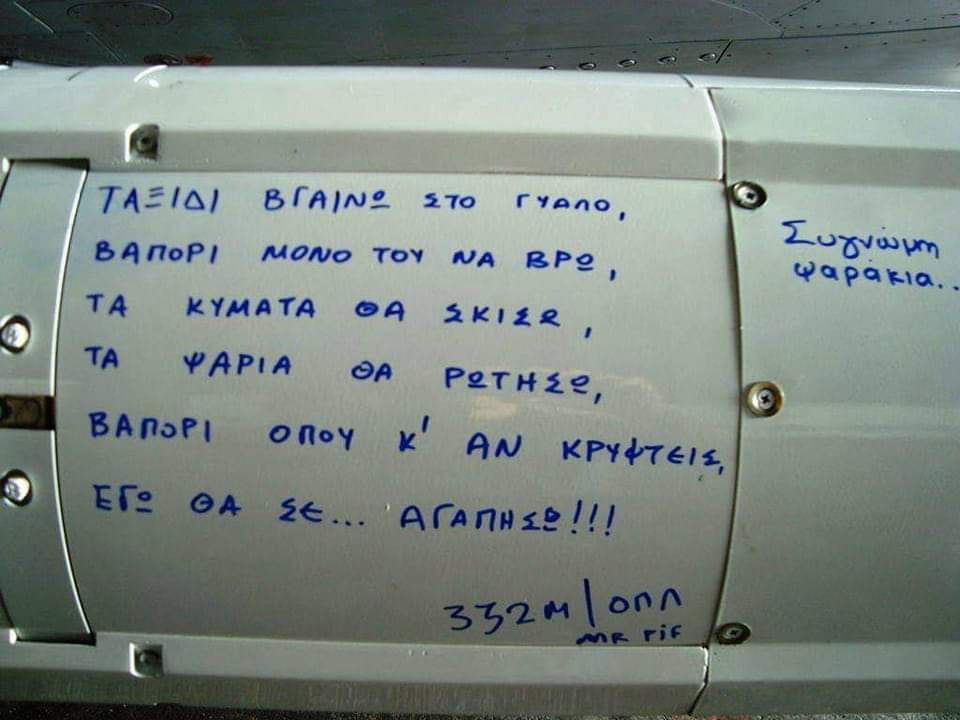 ΤΑΞΙΔΙ ΒΓΑΙΝΩ ΣΤΟ ΓΥΑΛΟ,
ΒΑΠΟΡΙ ΜΟΝΟ ΤΟΥ ΝΑ ΒΡΩ,
ΤΑ ΚΥΜΑΤΑ ΘΑ ΣΚΙΣΩ,
ΤΑ ΨΑΡΙΑ ΘΑ ΡΩΤΗΣΩ,
ΒΑΠΟΡΙ ΟΠΟΥ Κ' ΑΝ ΚΡΥΦΤΕΙΣ,
ΕΓΩ ΘΑ ΣΕ... ΑΓΑΠΗΣΩ!!!
332Μ/ΟΠΛ
MR FIF
Συγνώμη
ψαράκια..